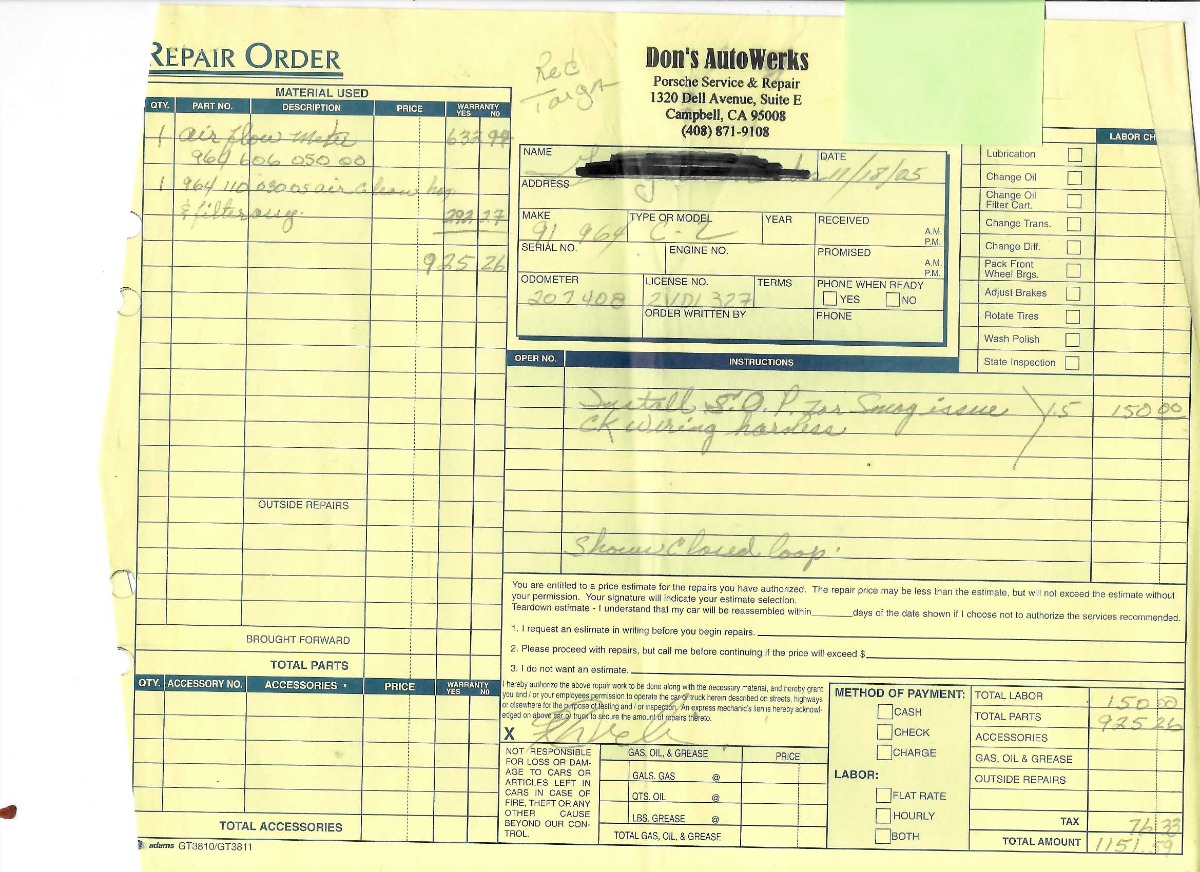 REPAIR ORDER
Rec
Target
Don's AutoWerks
Porsche Service & Repair
1320 Dell Avenue, Suite E
Campbell, CA 95008
(408) 871-9108
MATERIAL USED
QTY. PART NO. DESCRIPTION PRICE WARRANTY YES NO
1 air flow meter 632 99
964 606 050 00
1 964 110 030 05 air clean hsg
& filter assy. 292 27
925 26
OUTSIDE REPAIRS
BROUGHT FORWARD
TOTAL PARTS
QTY. ACCESSORY NO. ACCESSORIES PRICE WARRANTY YES NO
TOTAL ACCESSORIES
adams GT3810/GT3811
NAME DATE
11/18/05
ADDRESS
MAKE TYPE OR MODEL YEAR RECEIVED A.M. P.M.
91 964 C-2
SERIAL NO. ENGINE NO. PROMISED A.M. P.M.
ODOMETER LICENSE NO. TERMS PHONE WHEN READY
207408 2VDL327 YES NO
ORDER WRITTEN BY PHONE
LABOR CH
Lubrication
Change Oil
Change Oil
Filter Cart.
Change Trans.
Change Diff.
Pack Front
Wheel Brgs.
Adjust Brakes
Rotate Tires
Wash Polish
State Inspection
OPER NO. INSTRUCTIONS
Install S.O.P. for Smog issue 1.5 150 00
CK wiring harness
Shows Closed loop.
You are entitled to a price estimate for the repairs you have authorized. The repair price may be less than the estimate, but will not exceed the estimate without
your permission. Your signature will indicate your estimate selection.
Teardown estimate - I understand that my car will be reassembled within days of the date shown if I choose not to authorize the services recommended.
1. I request an estimate in writing before you begin repairs.
2. Please proceed with repairs, but call me before continuing if the price will exceed $
3. I do not want an estimate.
I hereby authorize the above repair work to be done along with the necessary material, and hereby grant
you and / or your employees permission to operate the car or truck herein described on streets, highways
or elsewhere for the purpose of testing and / or inspection. An express mechanic's lien is hereby acknowl-
edged on above car or truck to secure the amount of repairs thereto.
X
NOT RESPONSIBLE
FOR LOSS OR DAM-
AGE TO CARS OR
ARTICLES LEFT IN
CARS IN CASE OF
FIRE, THEFT OR ANY
OTHER CAUSE
BEYOND OUR CON-
TROL.
GAS, OIL, & GREASE PRICE
GALS. GAS @
QTS. OIL @
LBS. GREASE @
TOTAL GAS, OIL, & GREASE
METHOD OF PAYMENT:
CASH
CHECK
CHARGE
LABOR:
FLAT RATE
HOURLY
BOTH
TOTAL LABOR 150 00
TOTAL PARTS 925 26
ACCESSORIES
GAS, OIL & GREASE
OUTSIDE REPAIRS
TAX 76 33
TOTAL AMOUNT 1151.59